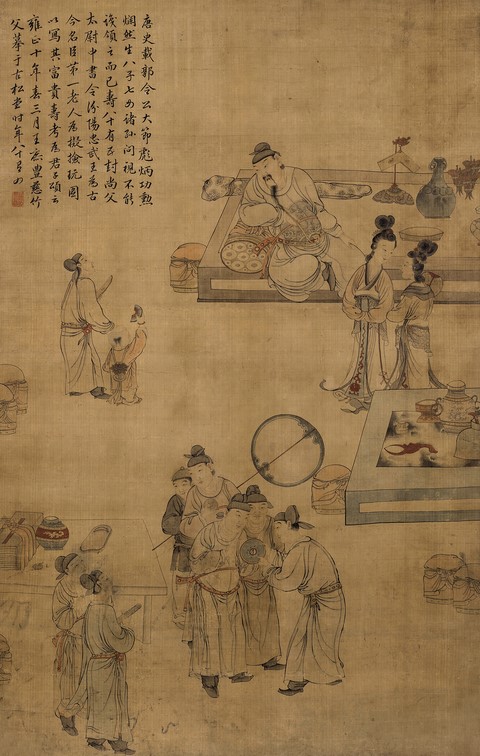 唐史載郭令公大節彪炳功勳
爛然生八子七女諸孫問視不能
識頷之而已壽八十有五封尚父
太尉中書令汾陽忠武王為古
今名臣第一老人為擬撿玩圖
以寫其富貴壽考為君子頌云
雍正十年春三月王豐慈竹
父摹于古松堂時年八十有四